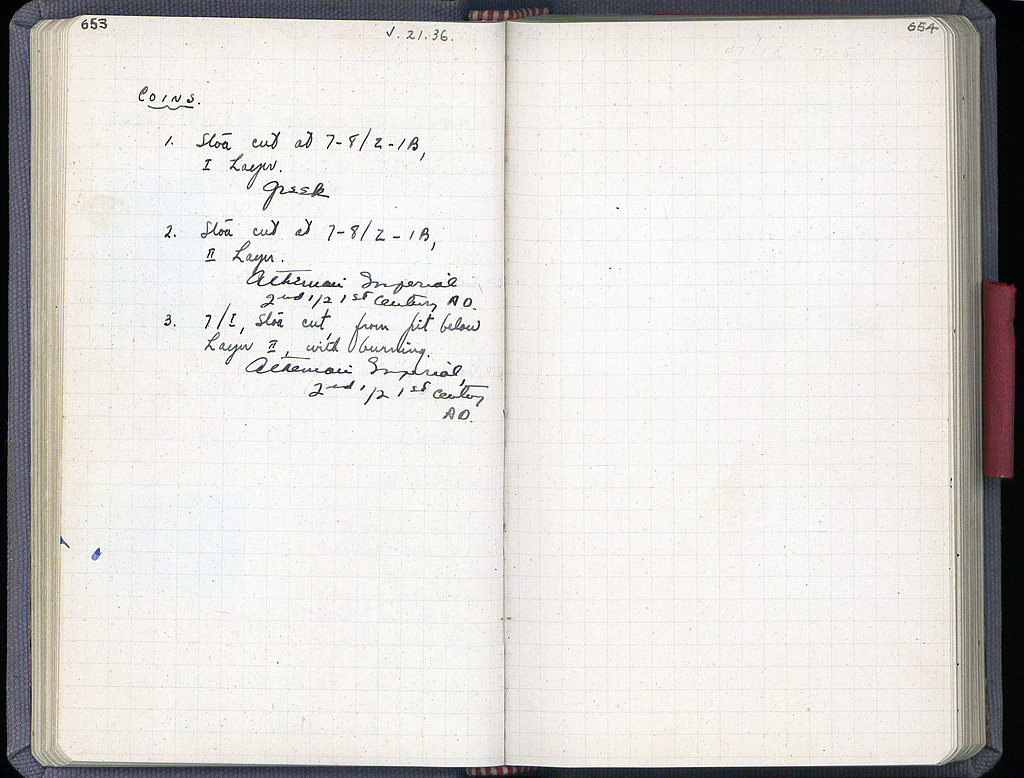 653
V. 21. 36.
COINS.
1. Stoa cut at 7-8/Z-1B,
I Layer.
Greek
2. Stoa cut at 7-8/Z-1B,
II Layer.
Athenian Imperial
2nd 1/2 1st Century AD.
3. 7/I, Stoa cut, from pit below
Layer II, with burning.
Athenian Imperial,
2nd 1/2 1st century
AD.
654